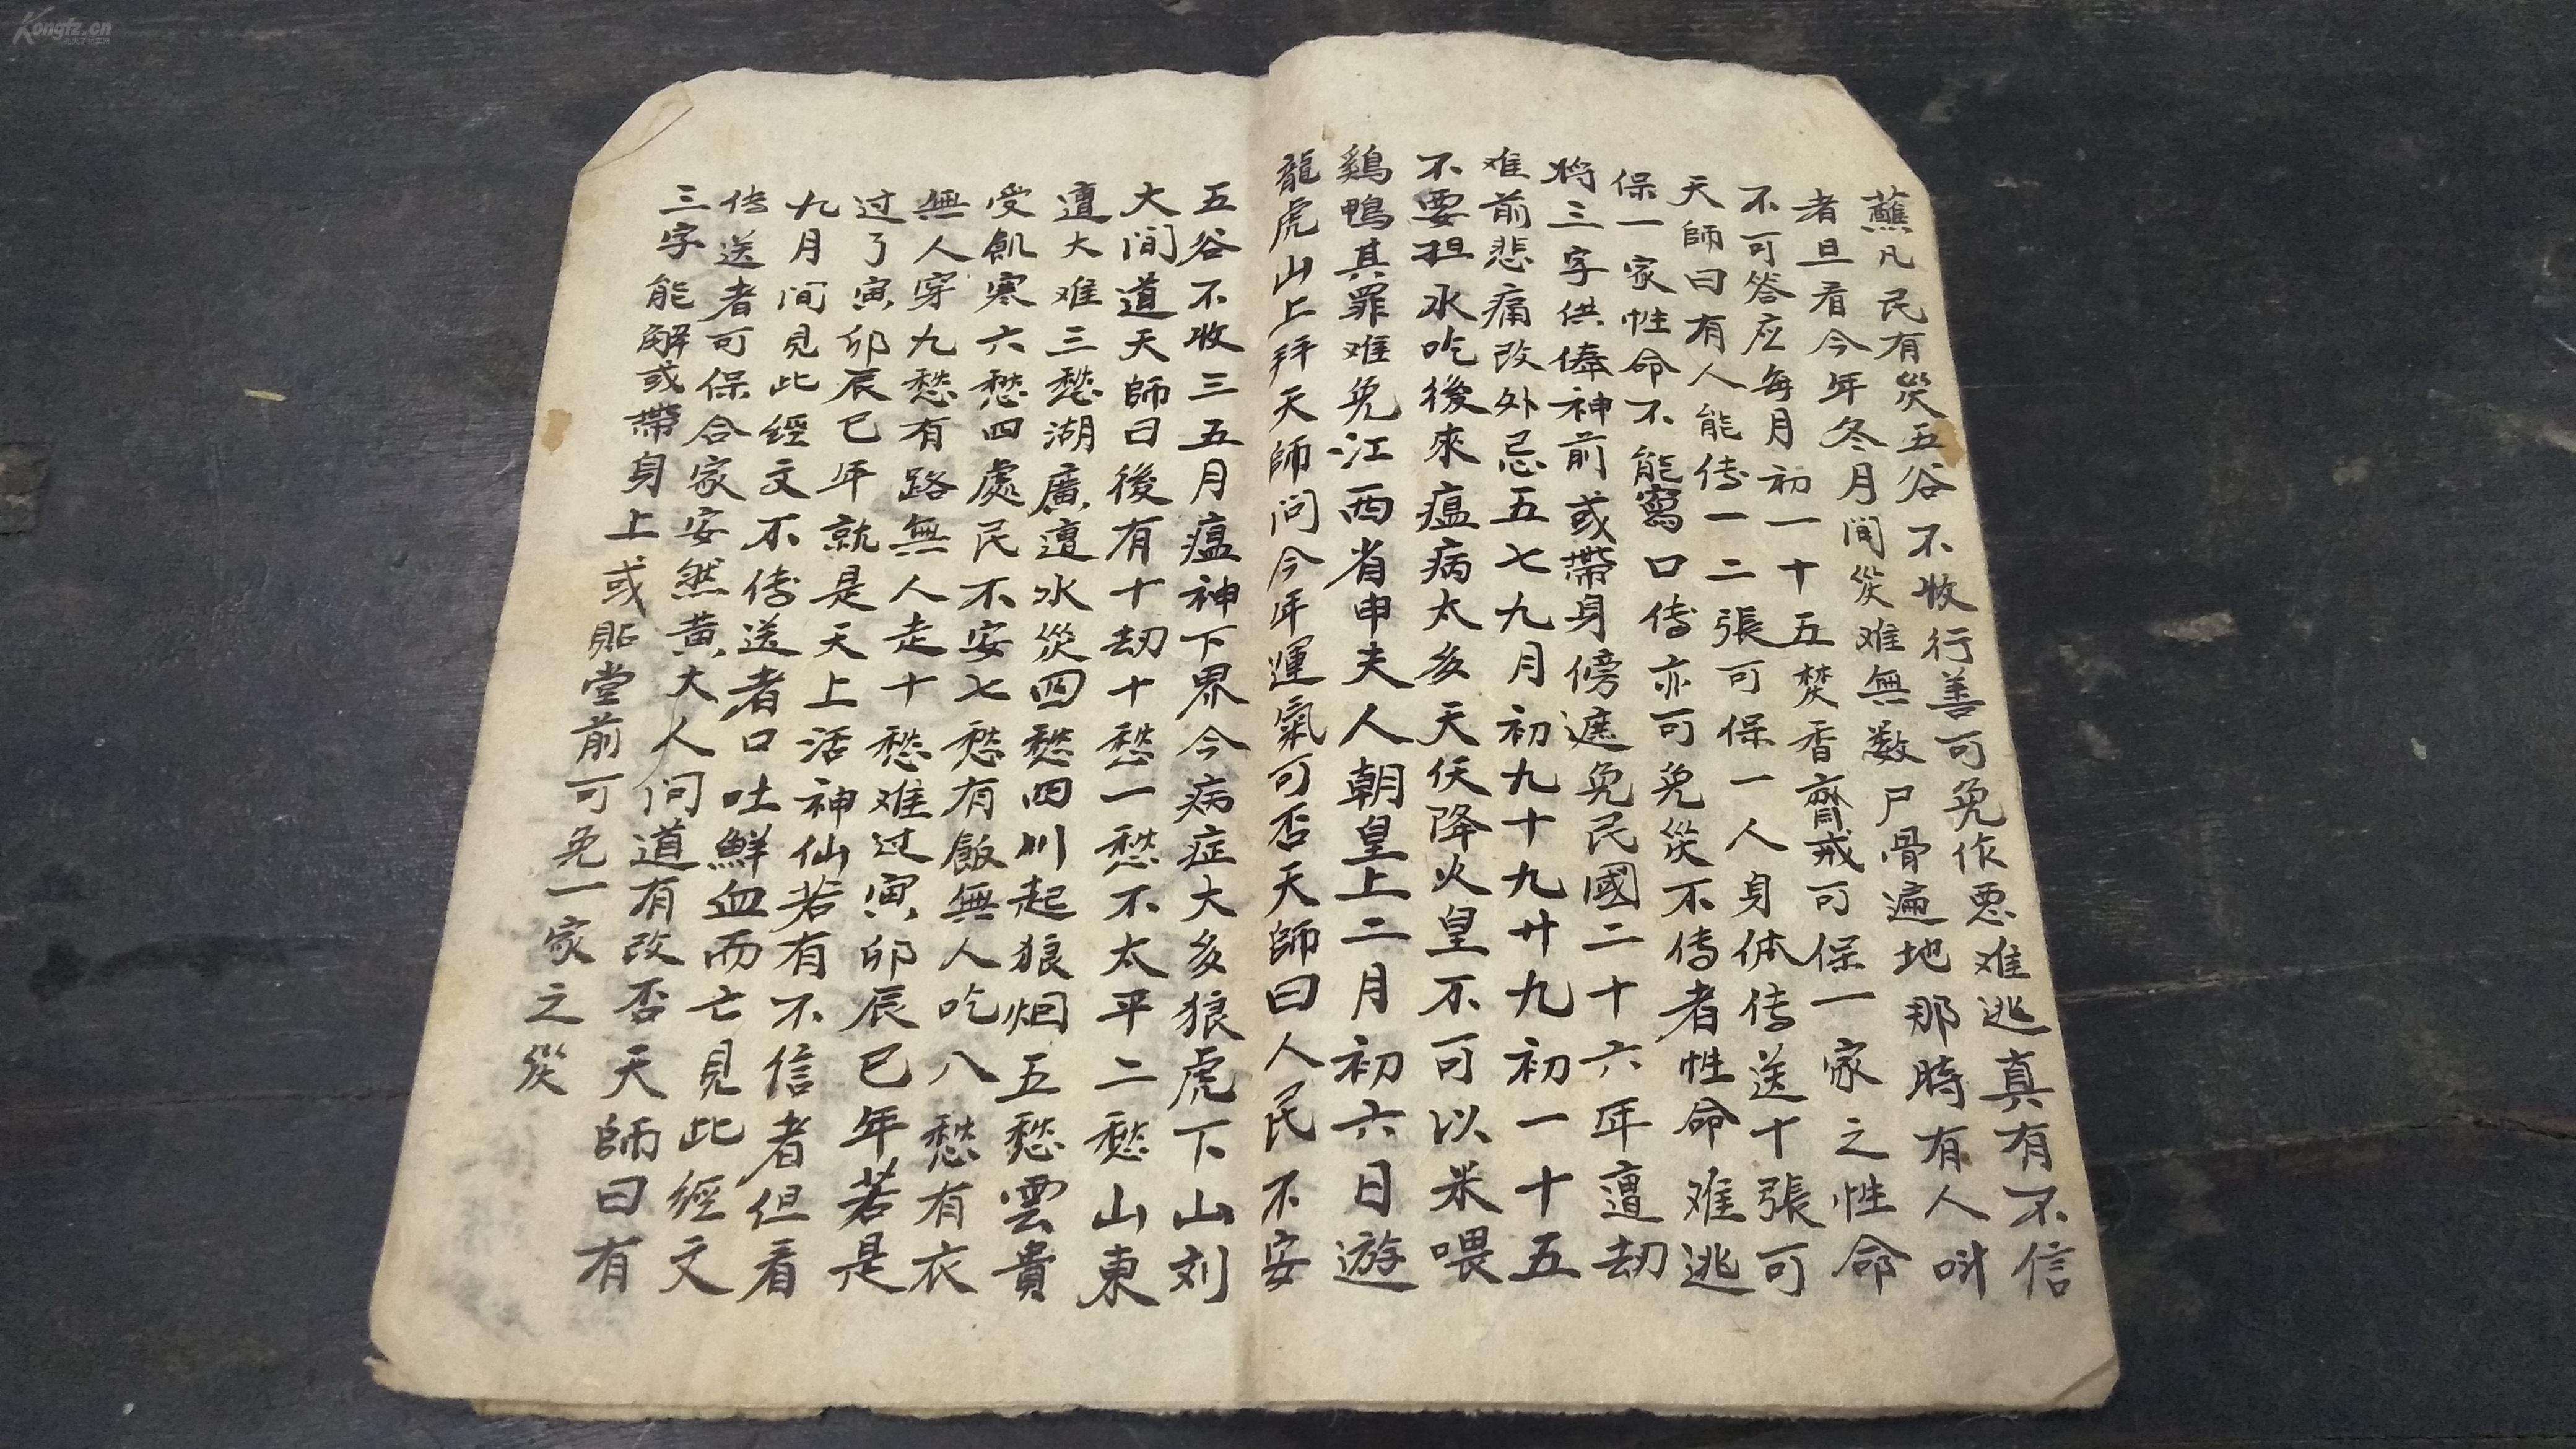 蘸凡民有災五谷不收行善可免作悪难逃真有不信
者旦看今年冬月间災难無数尸骨遍地那時有人叫
不可答应每月初一十五焚香齊戒可保一家之性命
天師曰有人能传一二張可保一人身体传送十張可
保一家性命不能寫口传亦可免災不传者性命难逃
将三字供俸神前或帶身傍遮免民國二十六年遭劫
难前悲痛改外忌五七九月初九十九廿九初一十五
不要担水吃後來瘟病太多天伕降火皇不可以米喂
鷄鴨其罪难免江西省申夫人朝皇上二月初六日遊
龍虎山上拜天師问今年運氣可否天師曰人民不安
五谷不收三五月瘟神下界今病症大多狼虎下山刘
大间道天師曰後有十劫十愁一愁不太平二愁山東
遭大难三愁湖廣遭水災四愁四川起狼烟五愁雲貴
受飢寒六愁四處民不安七愁有飯無人吃八愁有衣
無人穿九愁有路無人走十愁难过寅卯辰巳年若是
过了寅卯辰巳年就是天上活神仙若有不信者但看
九月间見此經文不传送者口吐鮮血而亡見此經文
传送者可保合家安然黄大人问道有改否天師曰有
三字能解或帶身上或貼堂前可免一家之災
Kongfz.cn